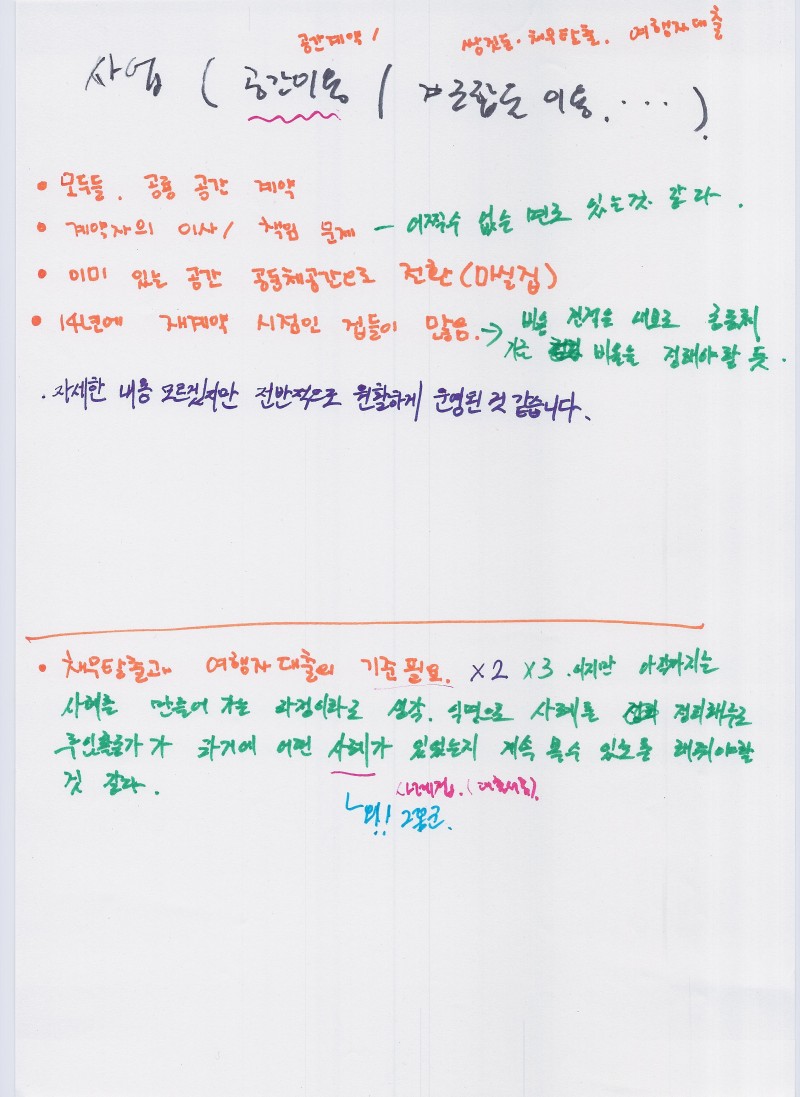 공간계약 /
쌍짓돈. 채무탈출. 여행자대출
사업 ( 공간이용 / 이용. ···· ).
• 모두들. 공룡 공간 계약
• 계약자의 이사/ 책임 문제 - 어쩔수 없는 면도 있는것 같다.
• 이미 있는 공간 공동체공간으로 전환(마실집)
• 14년에 재계약 시점인 집들이 많음. → 비용 새로 공동체
기금 비율을 정해야할 듯.
. 자세한 내용 모르겠지만 전반적으로 원활하게 운영된 것 같습니다.
• 채무탈출과 여행자대출의 기준 필요. x2 x3 .이지만 아직까지는
사례를 만들어 가는 과정이라고 생각. 익명으로 사례를 정리해두고
과거에 어떤 사례가 있었는지 계속 볼수 있도록 해줘야할
것 같다.
사례집. (대출사례).
└ 와!! 그렇군.